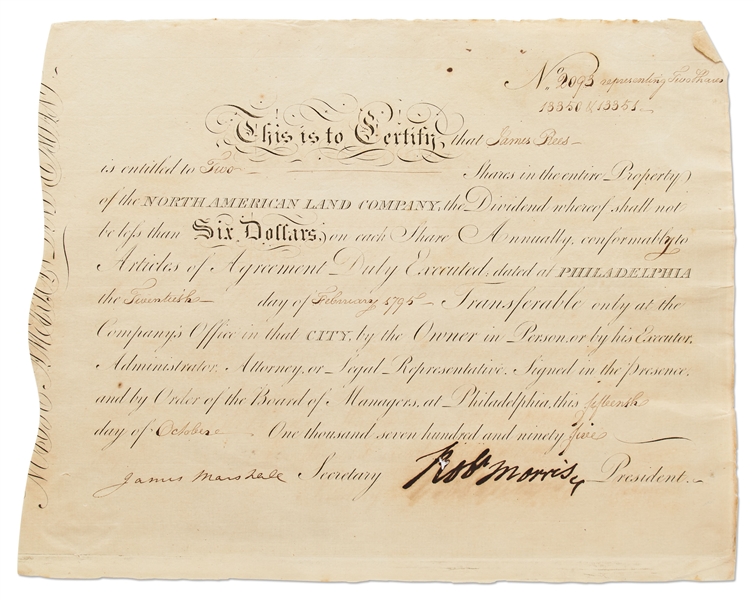 No. 2093 representing Two Shares
13350 & 13351
This is to Certify, that James Rees
is entitled to Two Shares in the entire Property
of the NORTH AMERICAN LAND COMPANY, the Dividend whereof shall not
be less than Six Dollars, on each Share Annually, conformably to
Articles of Agreement Duly Executed, dated at PHILADELPHIA
the Twentieth day of February 1795 Transferable only at the
Company's Office in that CITY, by the Owner in Person, or by his Executor,
Administrator, Attorney, or Legal Representative. Signed in the presence,
and by Order of the Board of Managers, at Philadelphia, this fifteenth
day of October One thousand seven hundred and ninety five
James Marshall Secretary Robt Morris President.